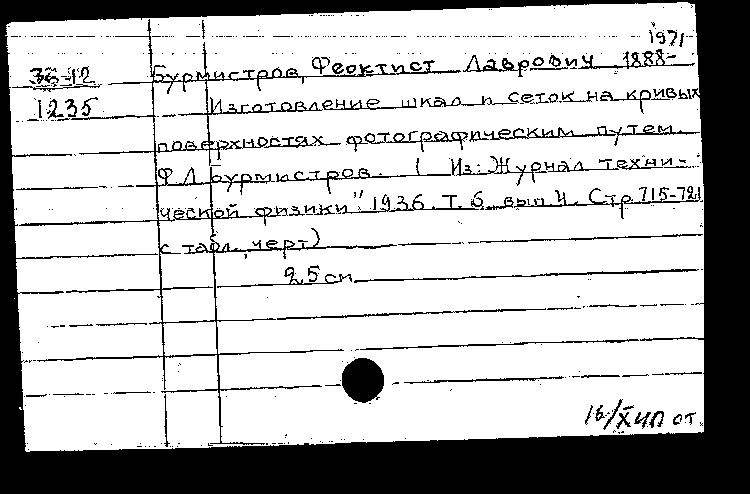 1971
36-12 Бурмистров, Феоктист Лаврович 1888-
1235 Изготовление шкал и сеток на кривых
поверхностях фотографическим путем.
Ф Л Бурмистров. ( Из: Журнал техни-
ческой физики" 1936. Т. 6. вып 4. Стр 715-721
с табл., черт)
25 см
16/X